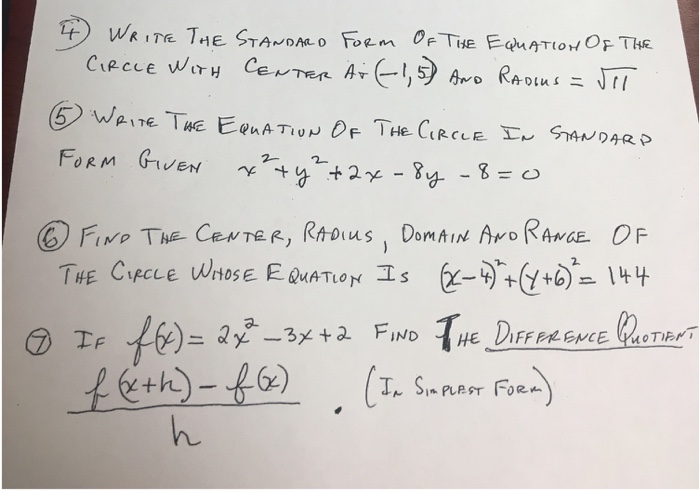 ④ WRITE THE STANDARD FORM OF THE EQUATION OF THE
CIRCLE WITH CENTER AT (-1,5) AND RADIUS = √11
⑤ WRITE THE EQUATION OF THE CIRCLE IN STANDARD
FORM GIVEN x²+y²+2x-8y-8=0
⑥ FIND THE CENTER, RADIUS, DOMAIN AND RANGE OF
THE CIRCLE WHOSE EQUATION IS (x-4)²+(y+6)²=144
⑦ IF f(x)=2x²-3x+2 FIND THE DIFFERENCE QUOTIENT
f(x+h)-f(x) . (IN SIMPLEST FORM)
h